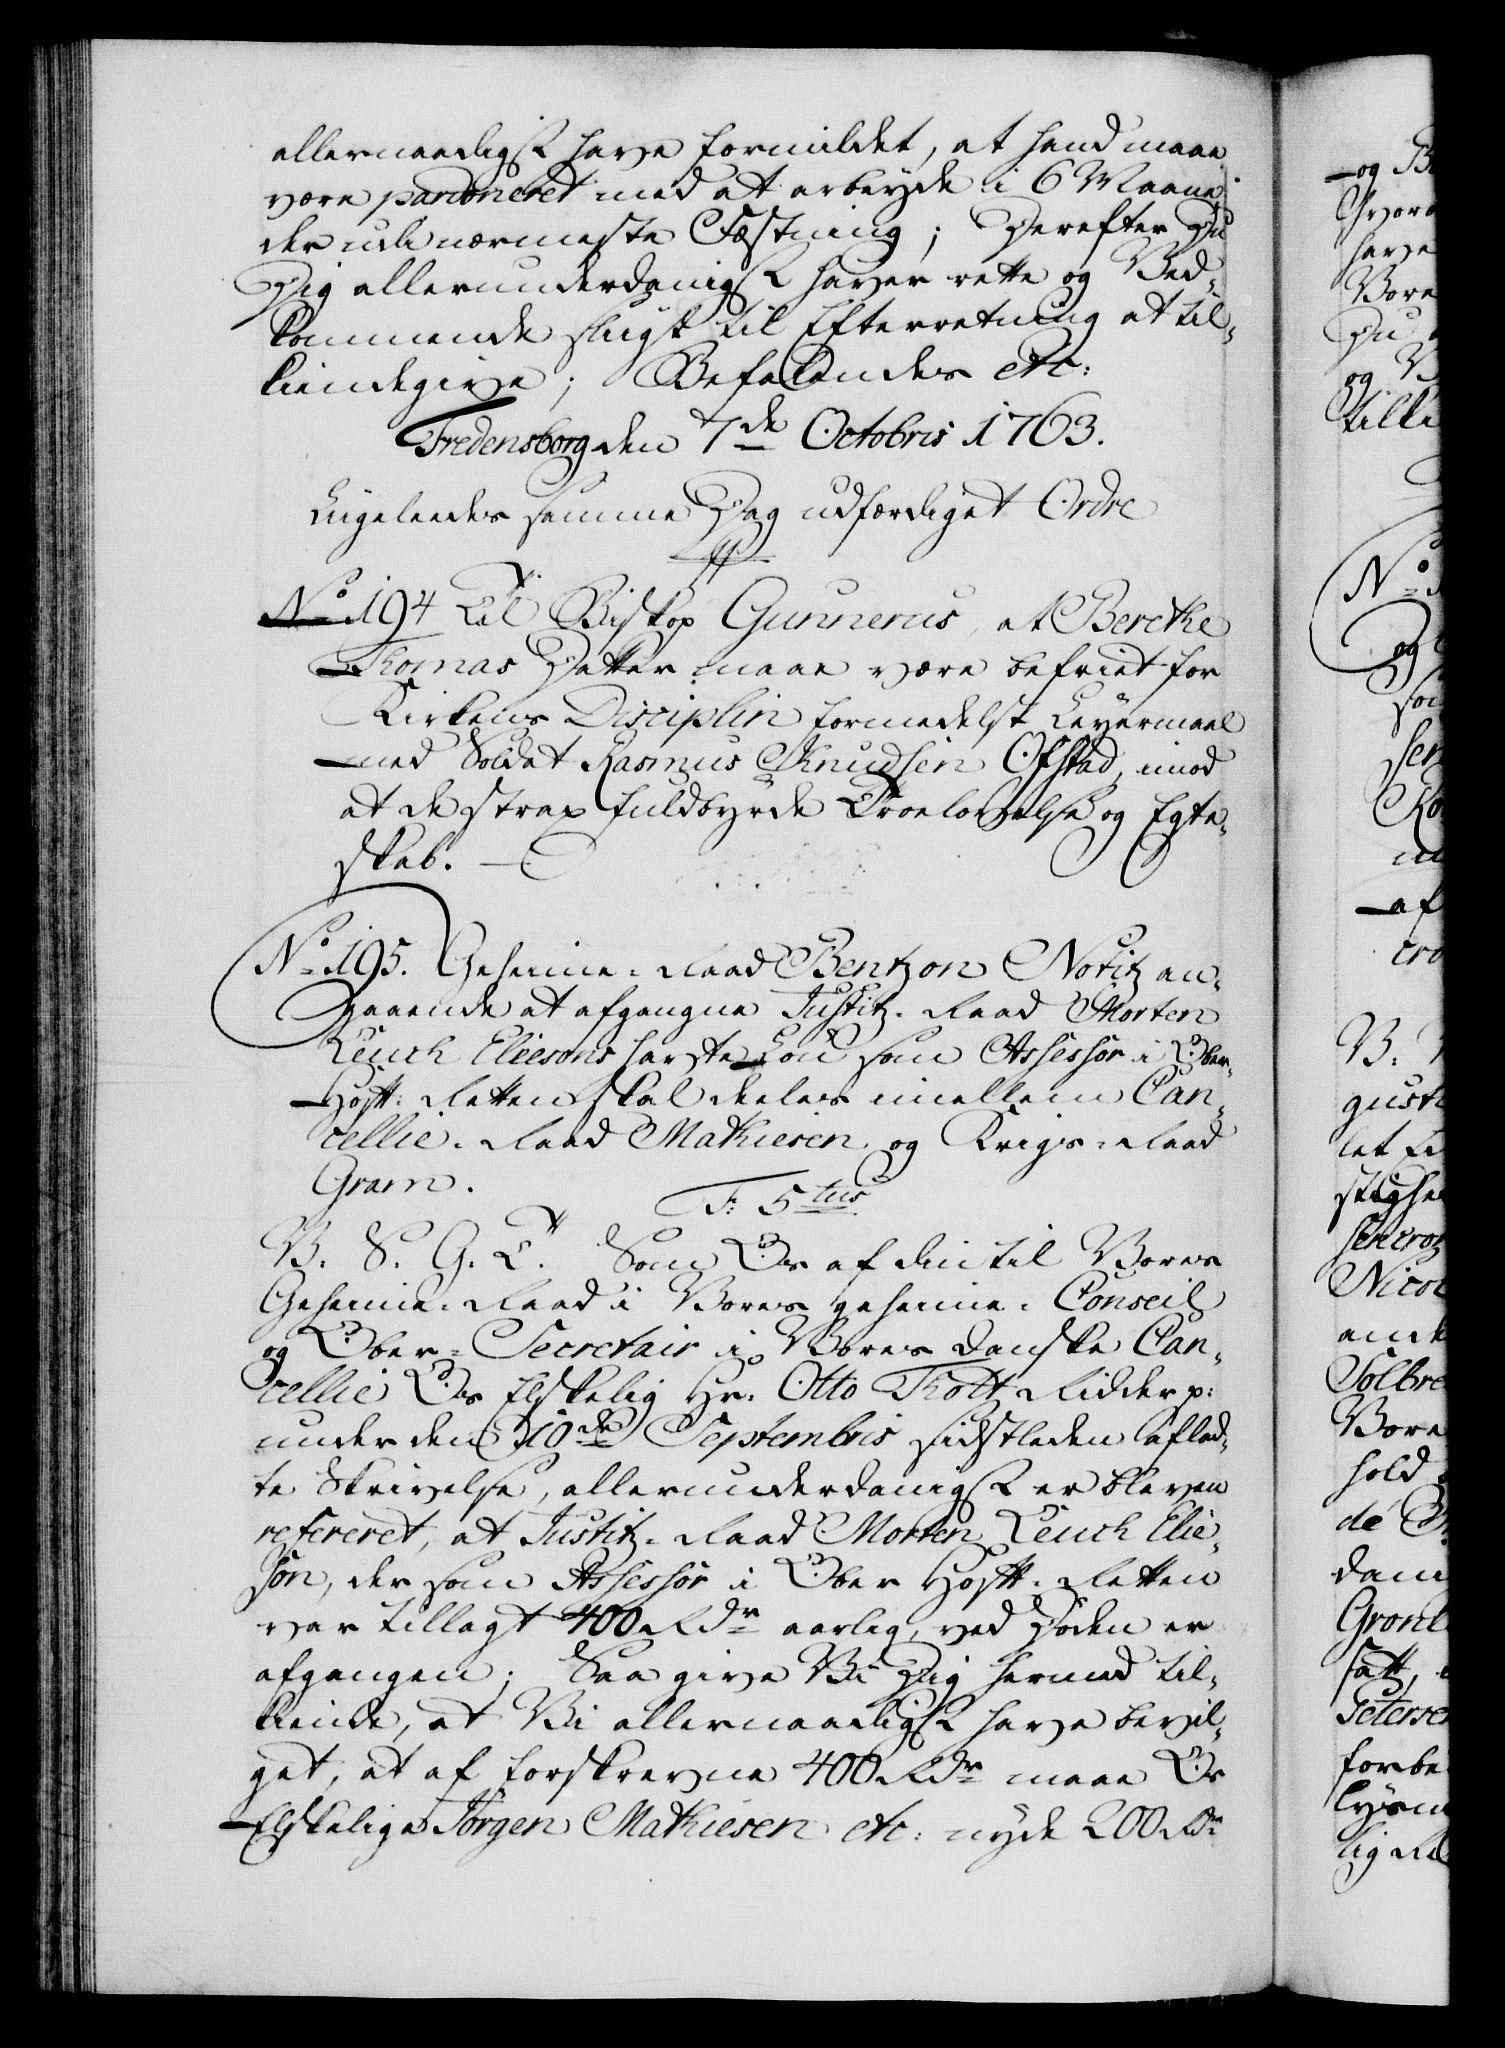 allernaadigst have formildet, at hand maae
være pardoneret med at arbeyde i 6 Maane¬
der udi nærmeste Fæstning; Derefter Du
Dig allerunderdanigst haver rette og Ved¬
kommende sligt til Efterretning at til¬
kiendegive; Befalendes etc:
Fredensborg den 7de Octobris 1763.
Ligeleedes samme Dag udfærdiget Ordre
No 194 Til Biskop Gunnerus, at Berethe
Thomas Datter maae være befriet for
Kirkens Disciplin formedelst Leyermaal
med Soldat Rasmus Knudsen Ofstad, imod
at de strax fuldbyrde Troelovelse og Egte¬
skab.
No 195. Geheime-Raad Bentzon Notitz an¬
gaaende at afgangne Justitz-Raad Morten
Leuch Eliesons havte Løn som Assessor i Ober¬
Hoff-Retten skal deeles imellem Can¬
cellie-Raad Mathiesen og Krigs-Raad
Gram.
F: 5tus
V. S. G. T. Som Os af den til Vores
Geheime-Raad i Vores geheime-Conseil
og Ober-Secretair i Vores danske Can¬
cellie Os Elskelig Hr. Otto Thott Ridder p:
under den 10de Septembris sidstleden aflad¬
te Skrivelse, allerunderdanigst er bleven
refereret, at Justitz-Raad Morten Leuch Elie¬
son, der som Assessor i Ober Hoff-Retten
var tillagt 400 Rdr aarlig, ved Døden er
afgangen; Saa give Vi Dig hermed til¬
kiende, at Vi allernaadigst have bevil¬
get, at af forskrevne 400 Rdr maae Os
Elskelige Jørgen Mathiesen etc: nyde 200 Rdr
og
have
Vore
Du
og V
tilki
No
og
som
sen
af
V.
gust
let
Nico
Vore
hold
de
dan
Grønl
satt,
Peterse
forbe